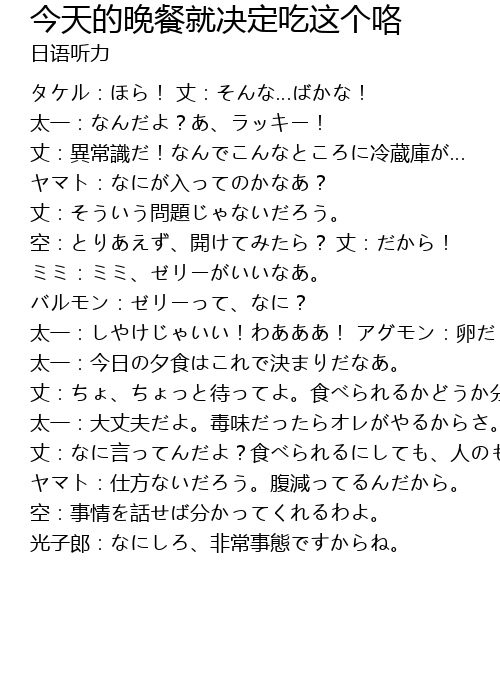 今天的晚餐就决定吃这个咯
日语听力
タケル：ほら！ 丈：そんな...ばかな！
太一：なんだよ？あ、ラッキー！
丈：異常識だ！なんでこんなところに冷蔵庫が...
ヤマト：なにが入ってのかなあ？
丈：そういう問題じゃないだろう。
空：とりあえず、開けてみたら？ 丈：だから！
ミミ：ミミ、ゼリーがいいなあ。
バルモン：ゼリーって、なに？
太一：しやけじゃいい！わあああ！ アグモン：卵だ
太一：今日の夕食はこれで決まりだなあ。
丈：ちょ、ちょっと待ってよ。食べられるかどうか分
太一：大丈夫だよ。毒味だったらオレがやるからさ。
丈：なに言ってんだよ？食べられるにしても、人のも
ヤマト：仕方ないだろう。腹減ってるんだから。
空：事情を話せば分かってくれるわよ。
光子郎：なにしろ、非常事態ですからね。